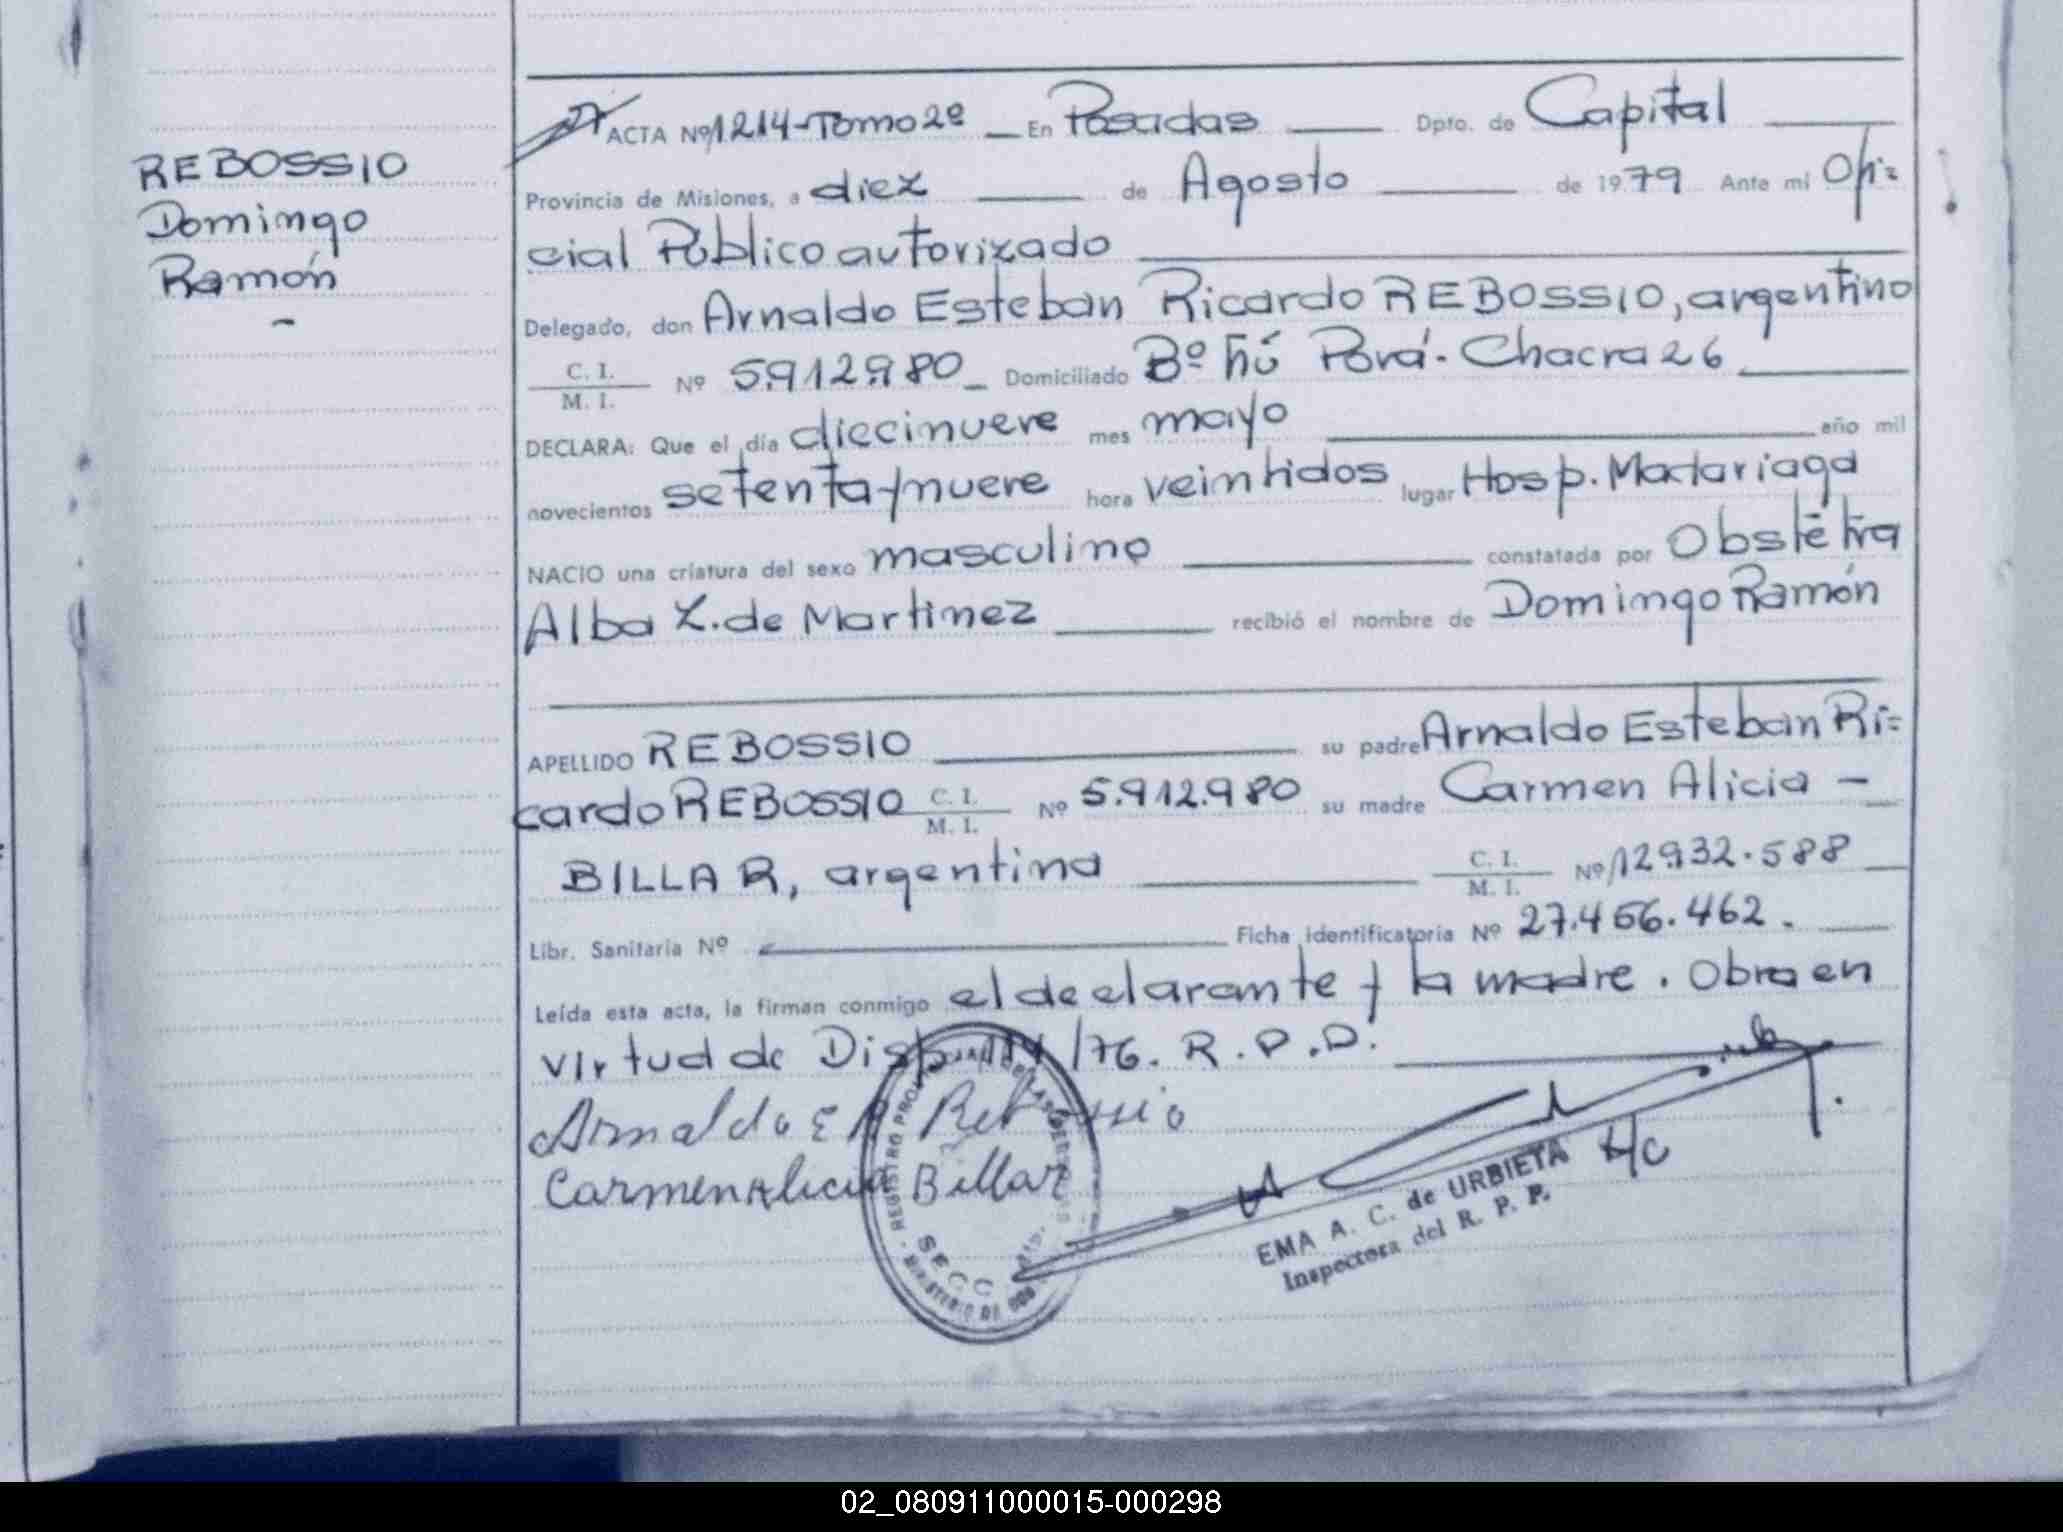 REBOSSIO
Domingo
Ramón
-
ACTA Nº 1214-Tomo 2º En Posadas Dpto. de Capital
Provincia de Misiones, a diez de Agosto de 1979 Ante mi Ofi=
cial Público autorizado
Delegado, don Arnaldo Esteban Ricardo REBOSSIO, argentino
C. I.
M. I. Nº 5.912.980 Domiciliado Bº Ñú Porá. Chacra 26
DECLARA: Que el día diecinueve mes mayo año mil
novecientos setenta y nueve hora veintidos lugar Hosp. Madariaga
NACIO una criatura del sexo masculino constatada por Obstétra
Alba Z. de Martinez recibió el nombre de Domingo Ramón
APELLIDO REBOSSIO su padre Arnaldo Esteban Ri=
cardo REBOSSIO C. I.
M. I. Nº 5.912.980 su madre Carmen Alicia -
BILLAR, argentina C. I.
M. I. Nº 12.932.588
Libr. Sanitaria Nº Ficha identificatoria Nº 27.456.462.
Leída esta acta, la firman conmigo el declarante y la madre. Obra en
virtud de Disp. /76. R.P.P.
Arnaldo E R Rebossio
Carmen Alicia Billar
REGISTRO PROV DE LAS PERSONAS
SECC
MINISTERIO DE GOB
H/C
EMA A. C. de URBIETA
Inspectora del R. P. P.
02_080911000015-000298